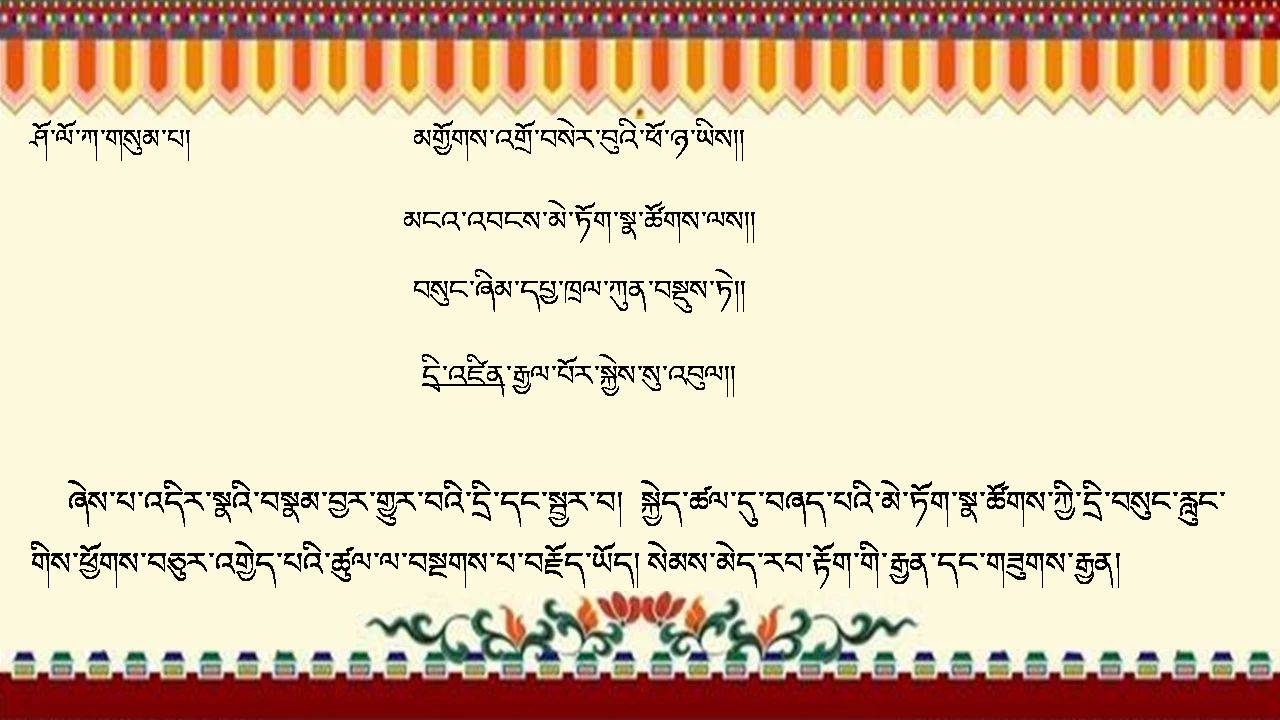 ཤོ་ལོ་ཀ་གསུམ་པ།	མགྱོགས་འགྲོ་བསེར་བུའི་ཕོ་ཉ་ཡིས།།
མངའ་འབངས་མེ་ཏོག་སྣ་ཚོགས་ལས།།
བསུང་ཞིམ་དཔྱ་ཁྲལ་ཀུན་བསྡུས་ཏེ།།
དྲི་འཛིན་རྒྱལ་པོར་སྐྱེས་སུ་འབུལ།།
ཞེས་པ་འདིར་སྣའི་བསྣམ་བྱར་གྱུར་བའི་དྲི་དང་སྦྱར་བ། སྐྱེད་ཚལ་དུ་བཞད་པའི་མེ་ཏོག་སྣ་ཚོགས་ཀྱི་དྲི་བསུང་རླུང་
གིས་ཕྱོགས་བཅུར་འགྱེད་པའི་ཚུལ་ལ་བསྔགས་པ་བརྗོད་ཡོད། སེམས་མེད་རབ་རྟོག་གི་རྒྱན་དང་གཟུགས་རྒྱན།